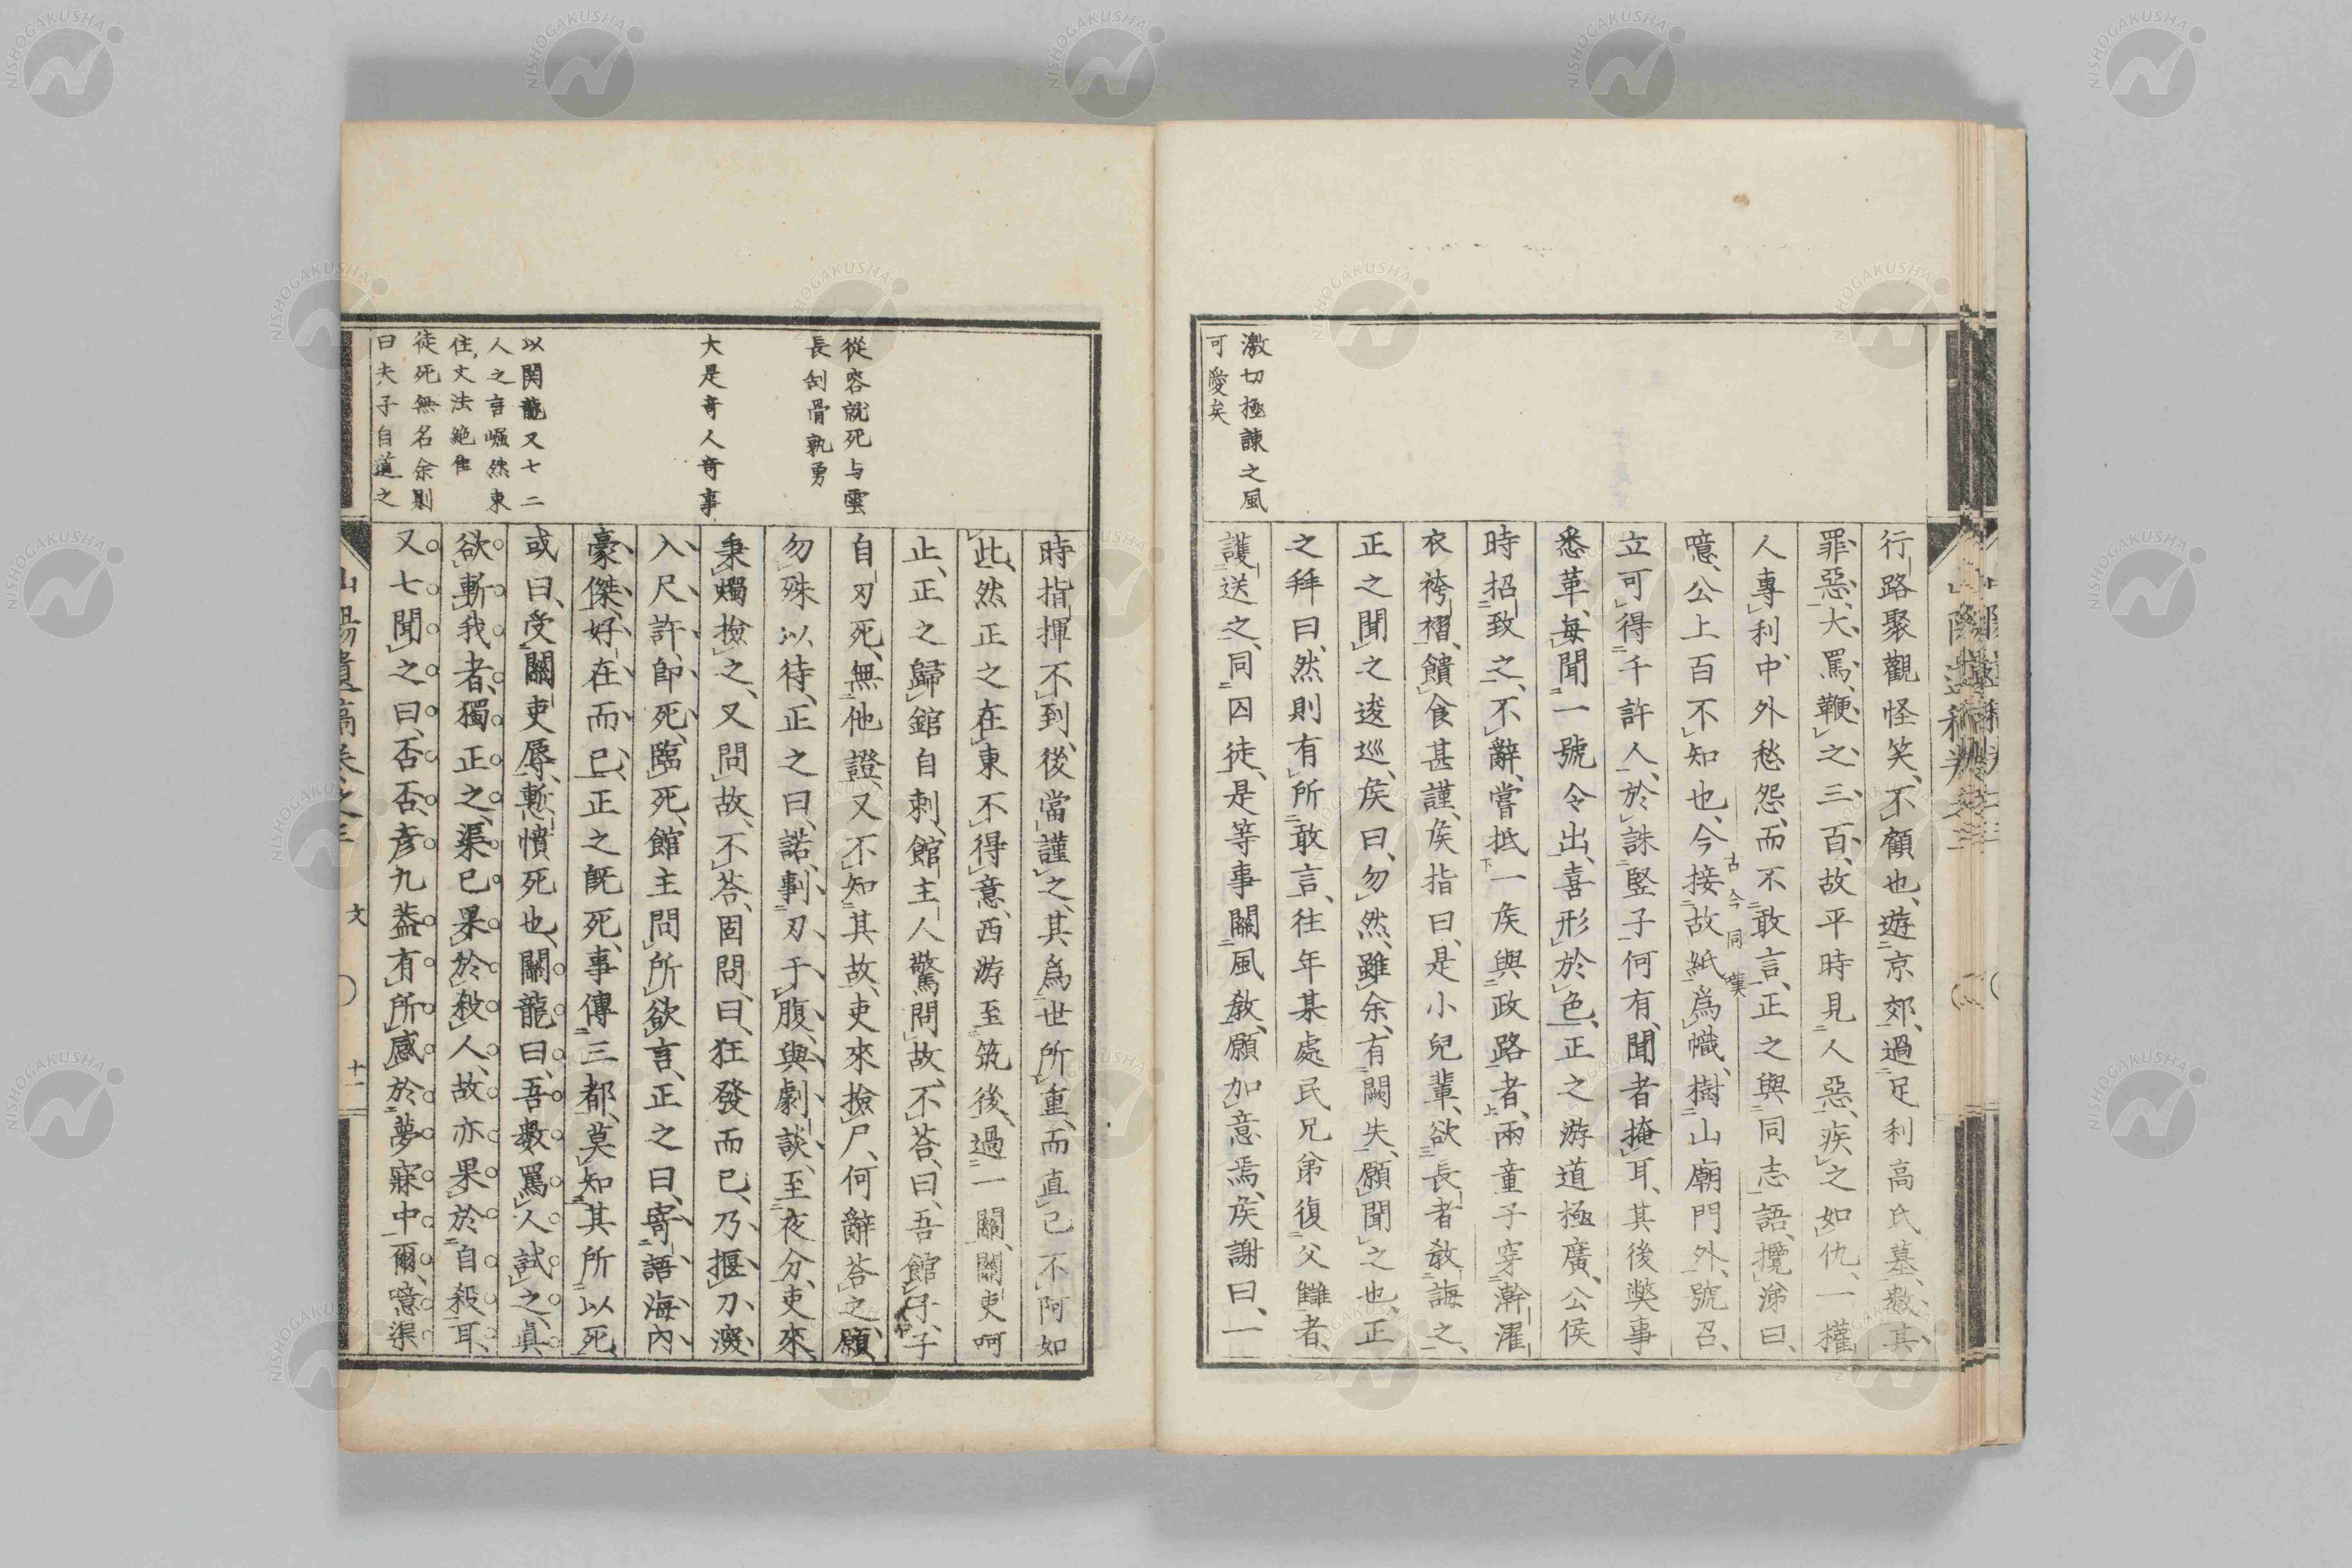 激切極諌之風
可愛矣
行路聚觀怪笑、不顧也、遊京郊、過足利高氏墓、數其
罪惡、大罵、鞭之三百、故平時見人惡、疾之如仇、一權
人專利、中外愁怨、而不敢言、正之與同志語、攬涕曰、
古今同嘆
噫、公上百不知也、今接故紙爲幟、樹山廟門外、號召、
立可得千許人、於誅竪子何有、聞者掩耳、其後獘事
悉革、每聞一號令出、喜形於色、正之游道極廣、公侯
時招致之、不辭、嘗抵一矦與政路者、兩童子穿澣濯
衣袴褶、饋食甚謹、矦指曰、是小兒輩、欲長者敎誨之、
正之聞之逡巡、矦曰、勿然、雖余、有闕失、願聞之也、正
之拜曰、然則有所敢言、往年某處民兄弟復父讎者、
護送之、同囚徒、是等事關風敎、願加意焉、矦謝曰、一
從容就死与雲
長刮骨孰勇
大是奇人奇事
以関龍又七二
人之言崛然束
住、文法絶佳
徒死無名余則
曰夫子自道之
時指揮不到、後當謹之、其爲世所重、而直己不阿如
此、然正之在東不得意、西游至筑後、過一關、關吏呵
止、正之歸錧自刺、館主人驚問故、不荅、曰、吾館子、子
自刃死、無他證、又不知其故、吏來撿尸、何辭荅之、願
勿殊以待、正之曰、諾、剚刃于腹、與劇談、至夜分、吏來、
秉燭撿之、又問故、不荅、固問、曰、狂發而已、乃揠刀、深
入尺許、卽死、臨死、館主問所欲言、正之曰、寄語海內
豪傑、好在而已、正之旣死、事傳三都、莫知其所以死、
或曰、受關吏辱、慙憤死也、關龍曰、吾數罵人試之、眞
欲斬我者、獨正之、渠已果於殺人、故亦果於自殺耳、
又七聞之曰、否否、彥九葢有所感於夢寐中爾、噫渠
山陽遺稿卷之三
文
十一